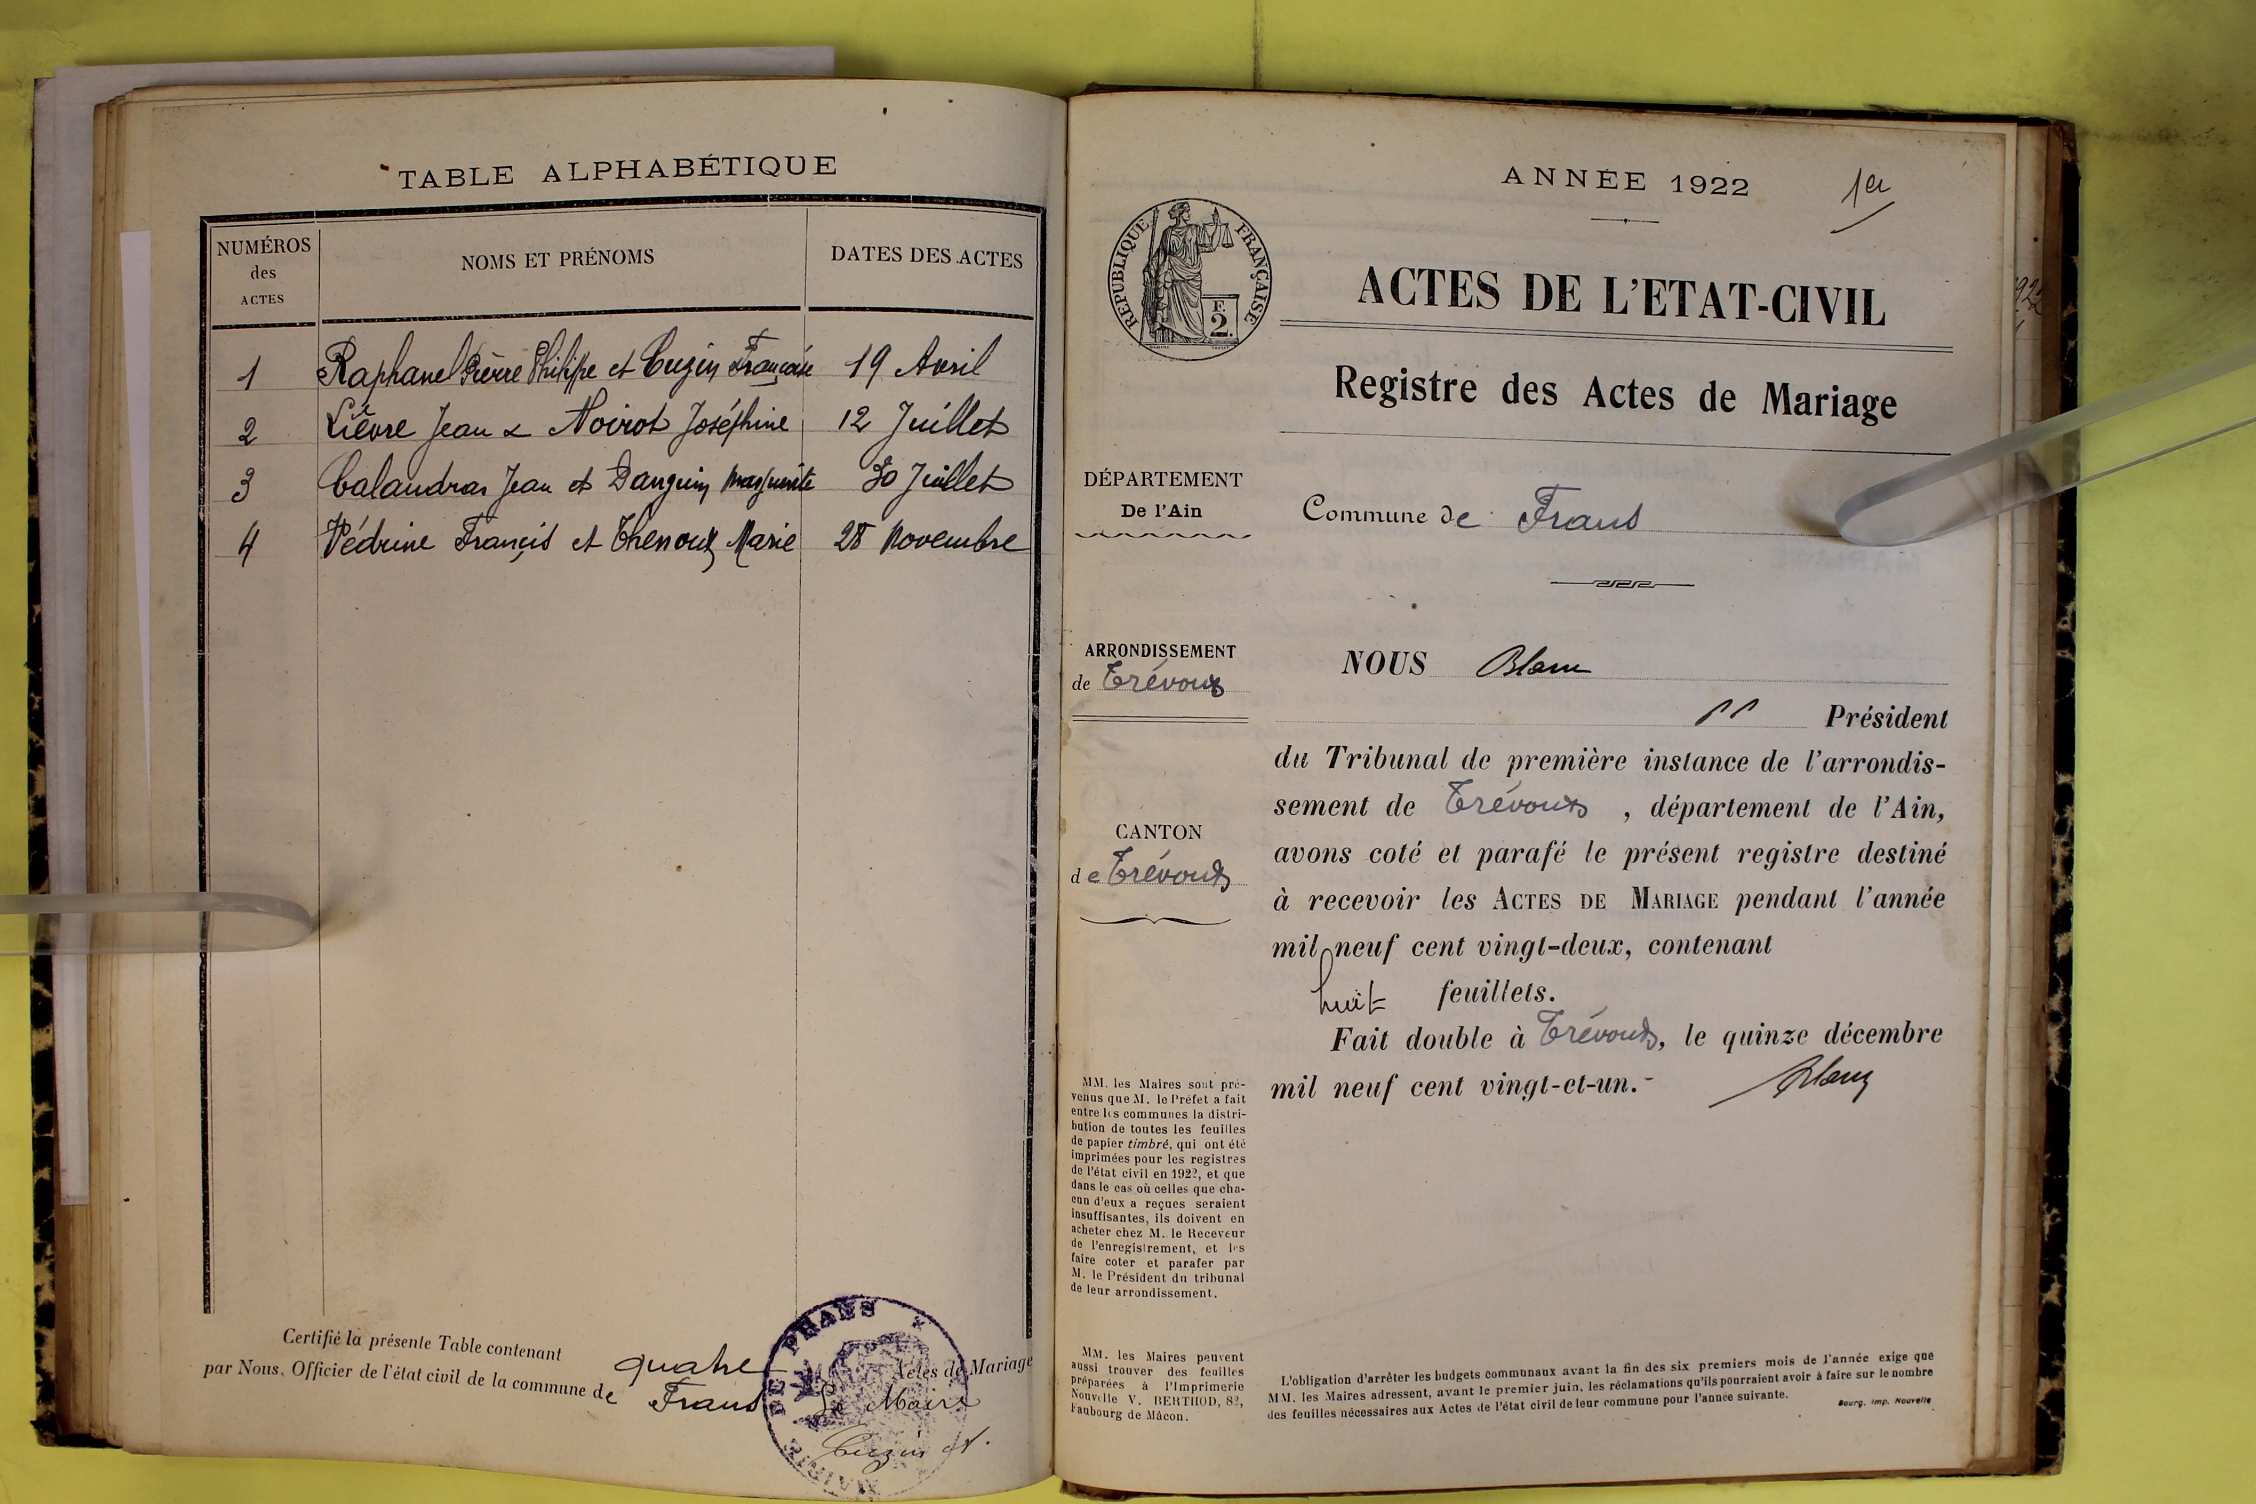 TABLE ALPHABÉTIQUE
NUMÉROS des ACTES
NOMS ET PRÉNOMS
DATES DES ACTES
1 Raphanel Pierre Philippe et Cuzin Françoise 19 Avril
2 Lièvre Jean & Noirot Joséphine 12 Juillet
3 Calandras Jean et Danguin Marguerite 30 Juillet
4 Védrine Francis et Thenoux Marie 28 Novembre
Certifié la présente Table contenant quatre Actes de Mariage
par Nous, Officier de l'état civil de la commune de Frans
Le Maire
Cuzin
MAIRIE DE FRANS
ANNÉE 1922
1er
RÉPUBLIQUE FRANÇAISE
F.
2.
ACTES DE L'ETAT-CIVIL
Registre des Actes de Mariage
DÉPARTEMENT
De l'Ain
Commune de Frans
ARRONDISSEMENT
de Trévoux
CANTON
de Trévoux
MM. les Maires sont pré-
venus que M. le Préfet a fait
entre les communes la distri-
bution de toutes les feuilles
de papier timbré, qui ont été
imprimées pour les registres
de l'état civil en 1922, et que
dans le cas où celles que cha-
cun d'eux a reçues seraient
insuffisantes, ils doivent en
acheter chez M. le Receveur
de l'enregistrement, et les
faire coter et parafer par
M. le Président du tribunal
de leur arrondissement.
MM. les Maires peuvent
aussi trouver des feuilles
préparées à l'Imprimerie
Nouvelle V. BERTHOD, 82,
Faubourg de Mâcon.
NOUS Blanc
Président
du Tribunal de première instance de l'arrondis-
sement de Trévoux, département de l'Ain,
avons coté et parafé le présent registre destiné
à recevoir les ACTES DE MARIAGE pendant l'année
mil neuf cent vingt-deux, contenant
huit feuillets.
Fait double à Trévoux, le quinze décembre
mil neuf cent vingt-et-un.-
Blanc
L'obligation d'arrêter les budgets communaux avant la fin des six premiers mois de l'année exige que
MM. les Maires adressent, avant le premier juin, les réclamations qu'ils pourraient avoir à faire sur le nombre
des feuilles nécessaires aux Actes de l'état civil de leur commune pour l'année suivante.
Bourg. Imp. Nouvelle